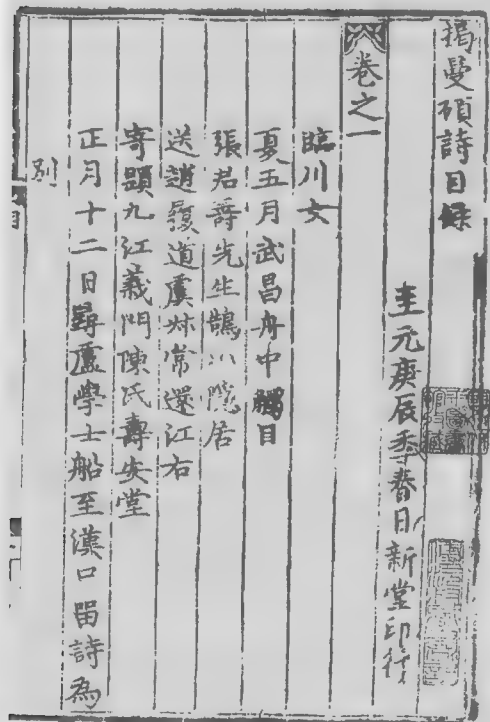 揭曼碩詩目錄
至元庚辰季春日新堂印行
卷之一
臨川女
夏五月武昌舟中觸目
張君壽先生鵠山隱居
送趙履道虞妹常還江右
寄題九江義門陳氏壽安堂
正月十二日尋盧學士船至漢口留詩為
別